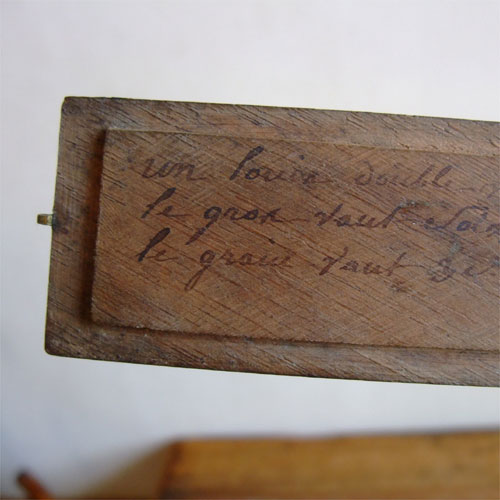 un louis double
le gros vaut
le grain vaut